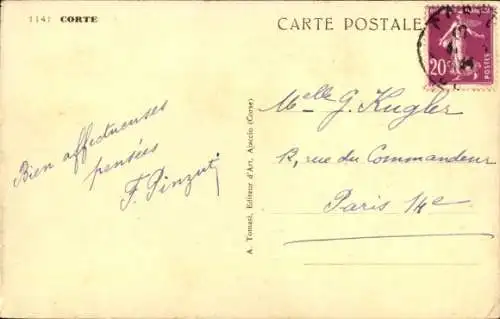 1141 CORTE
CARTE POSTALE
20c
POSTES
Bien affectueuses
pensées
F. Pinzuti
A. Tomasi, Editeur d'Art, Ajaccio (Corse)
Melle G. Kugler
12, rue du Commandeur
Paris 14e